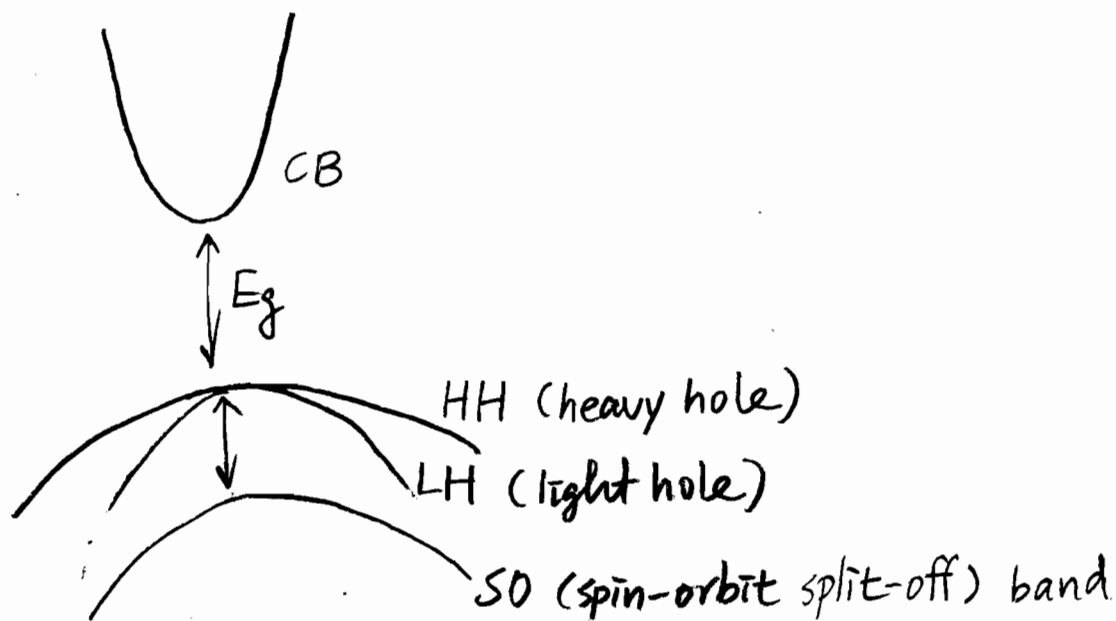 CB
Eg
HH (heavy hole)
LH (light hole)
SO (spin-orbit split-off) band